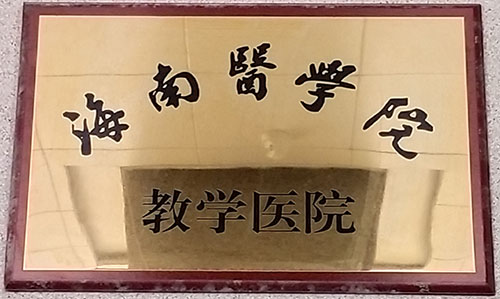 海南醫學院
教学医院